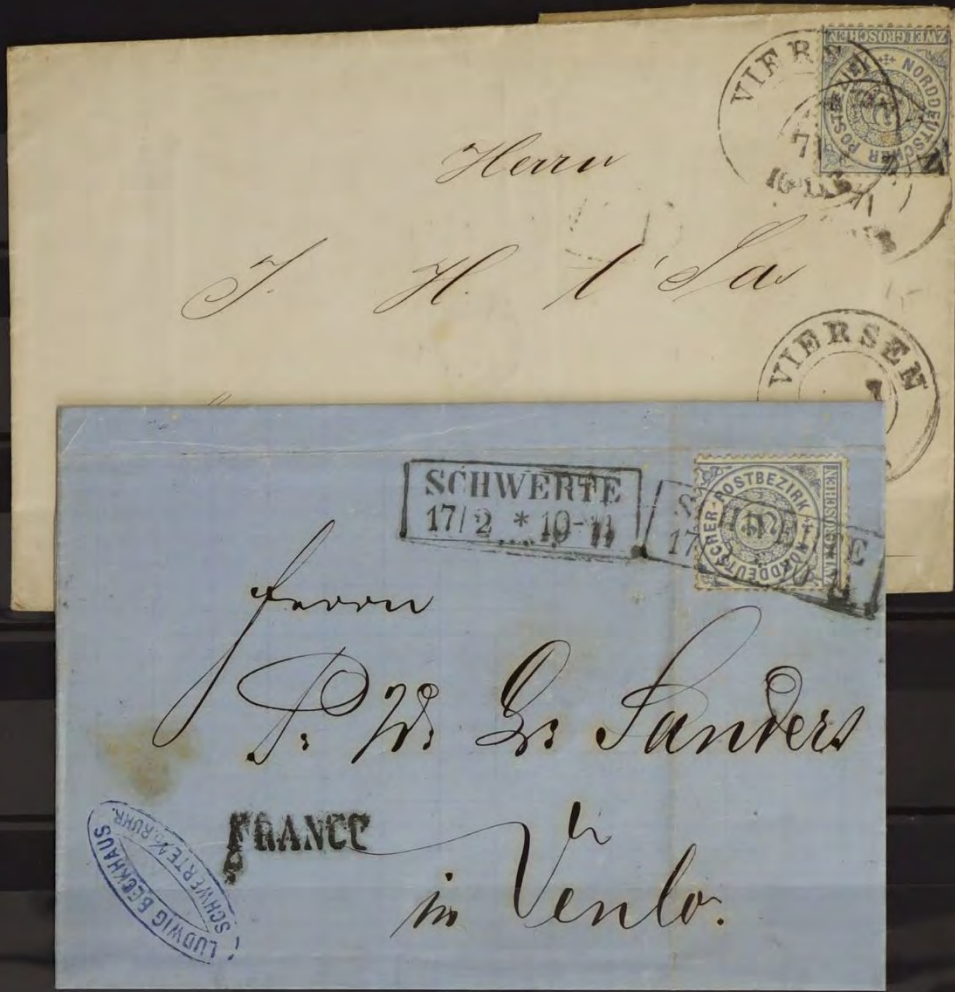 ZWEI GROSCHEN
NORDDEUTSCHER POSTBEZIRK
Herrn
J. H. l'Sa
VIERSEN
SCHWERTE
17/2 * 10-11
SCHWERTE
NORDDEUTSCHER-POSTBEZIRK
ZWEI GROSCHEN
Herrn
P. W. Gr. Sanders
FRANCO
in Venlo.
LUDWIG BECKHAUS
SCHWERTE a/d RUHR.